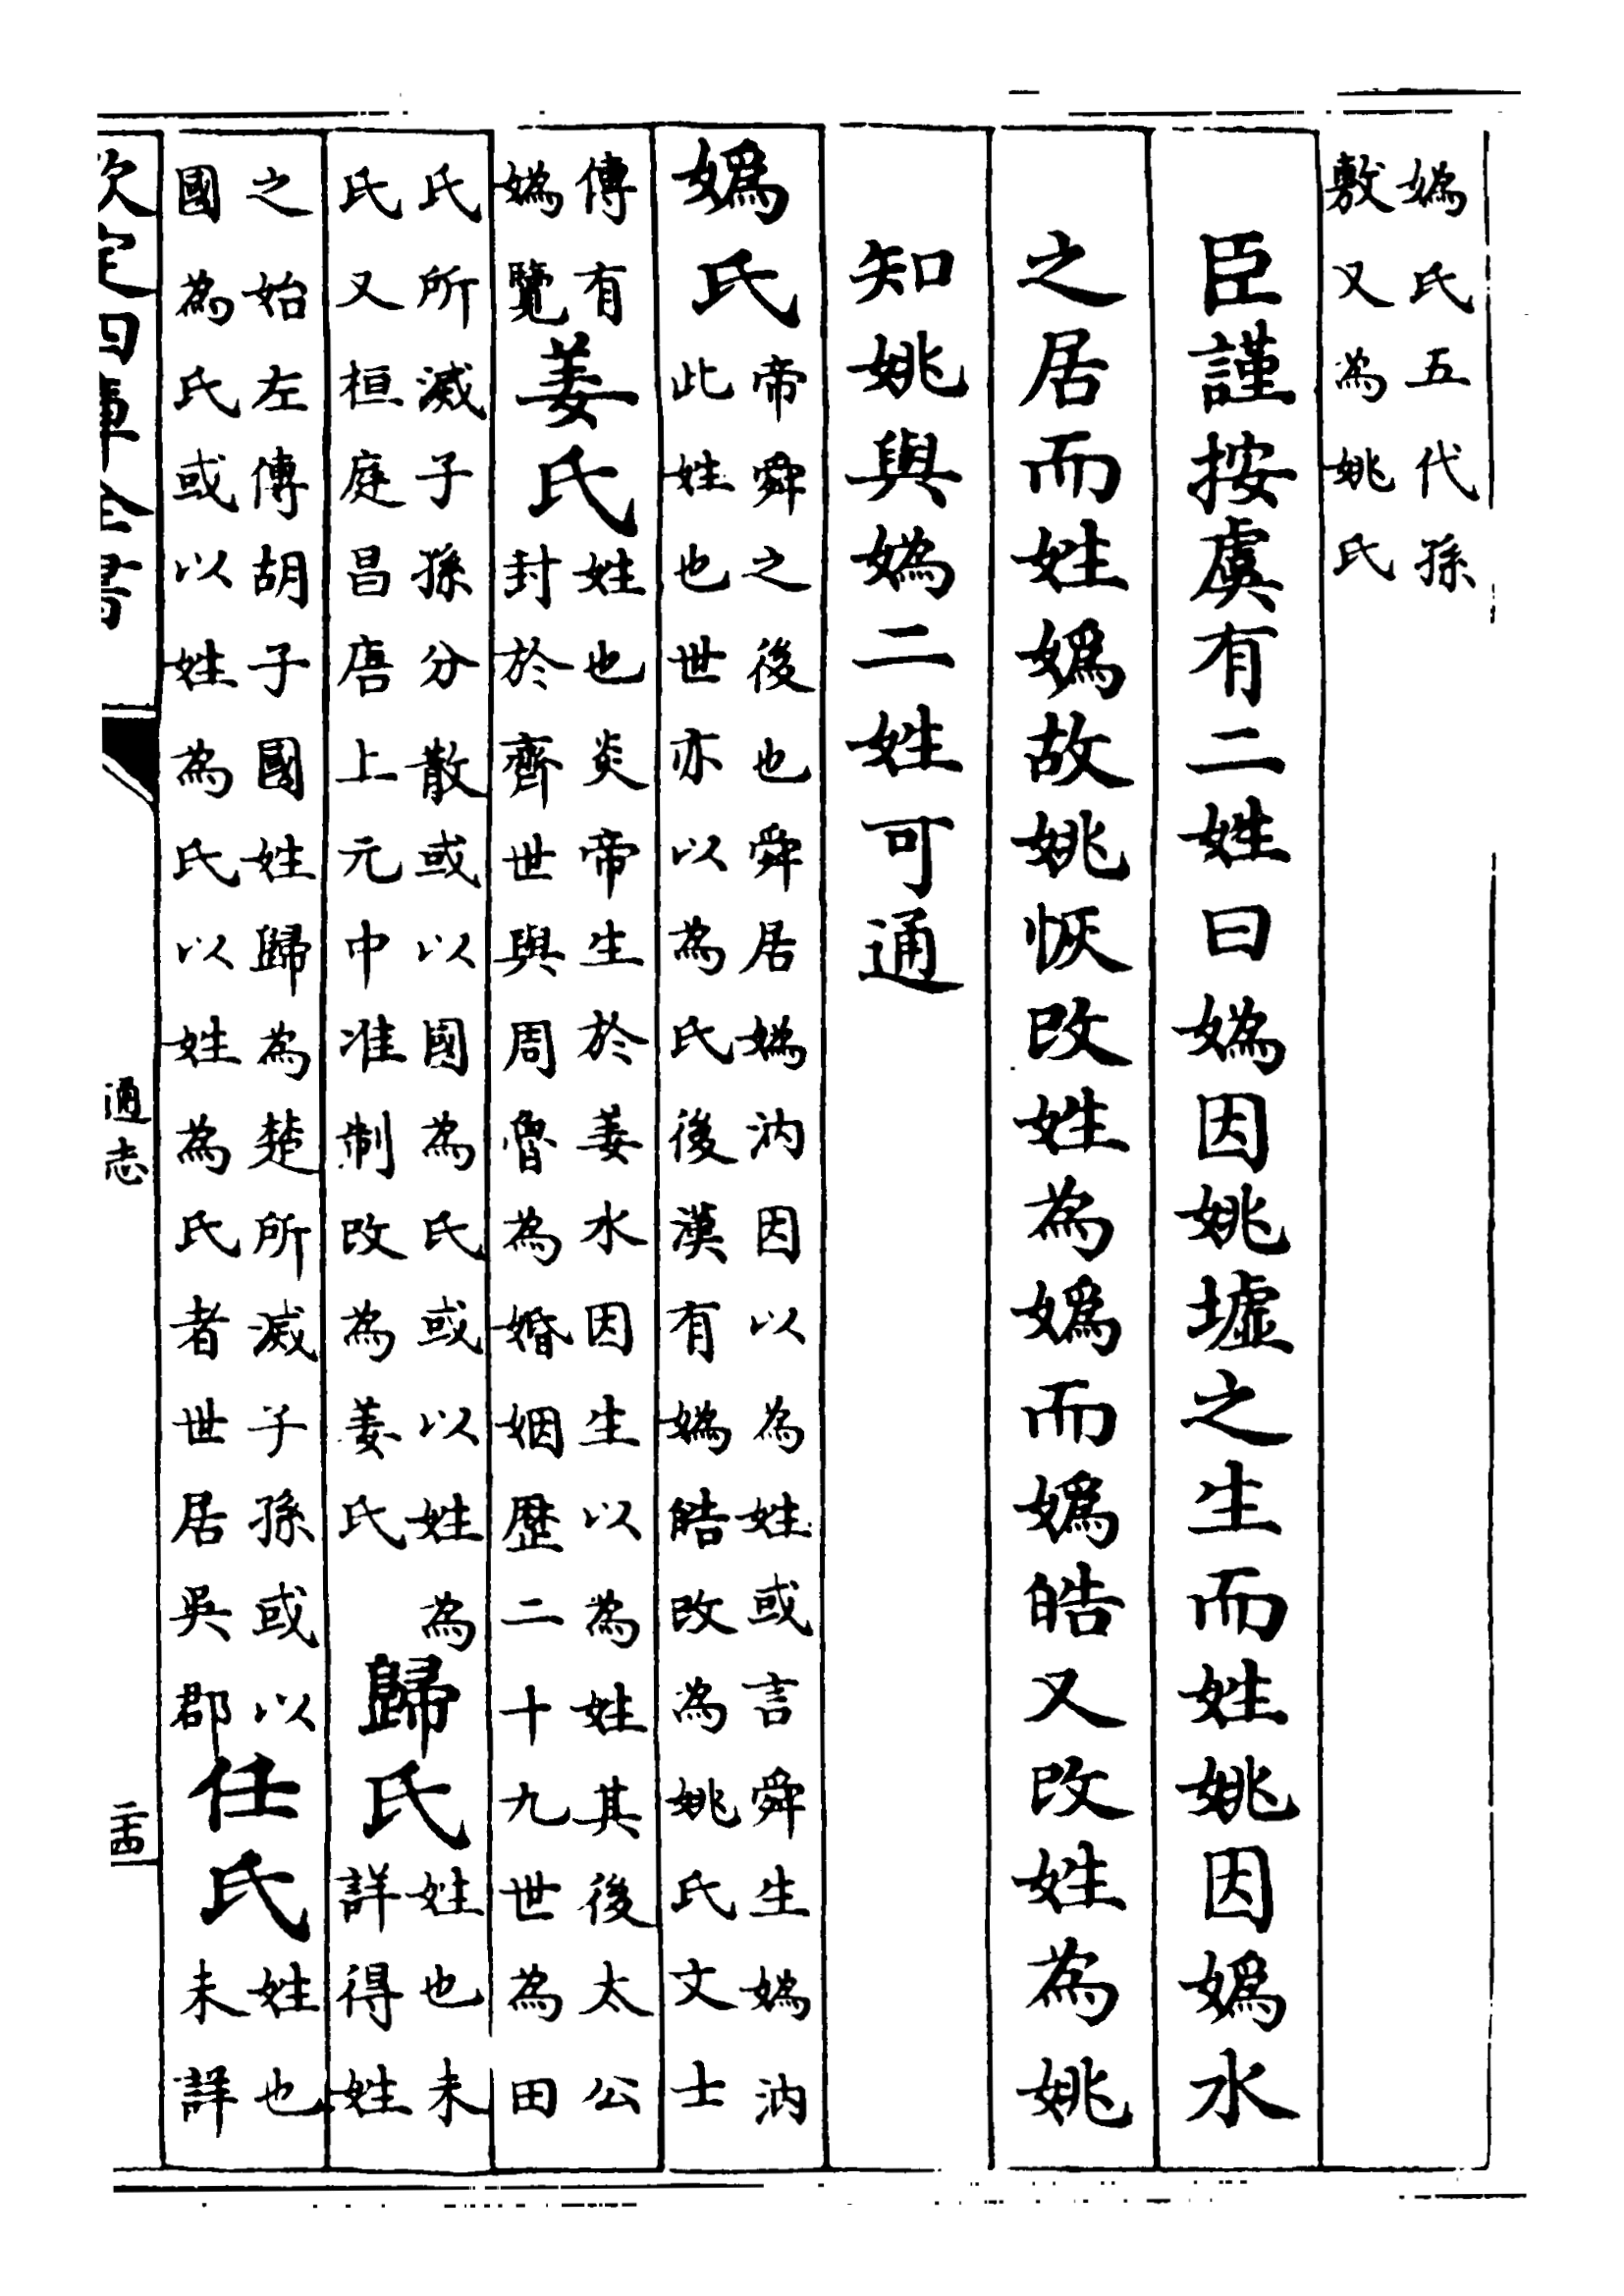 媯氏五代孫
敷又為姚氏
臣謹按虞有二姓曰媯因姚墟之生而姓姚因媯水
之居而姓媯故姚恢改姓為媯而媯皓又改姓為姚
知姚與媯二姓可通
媯氏
帝舜之後也舜居媯汭因以為姓或言舜生媯汭
此姓也世亦以為氏後漢有媯皓改為姚氏文士
傳有
媯覽
姜氏
姓也炎帝生於姜水因生以為姓其後太公
封於齊世與周魯為婚姻歷二十九世為田
氏所滅子孫分散或以國為氏或以姓為
氏又桓庭昌唐上元中准制改為姜氏
歸氏
姓也未
詳得姓
之始左傳胡子國姓歸為楚所滅子孫或以
國為氏或以姓為氏以姓為氏者世居吳郡
任氏
姓也
未詳
欽定四庫全書
通志
二十四